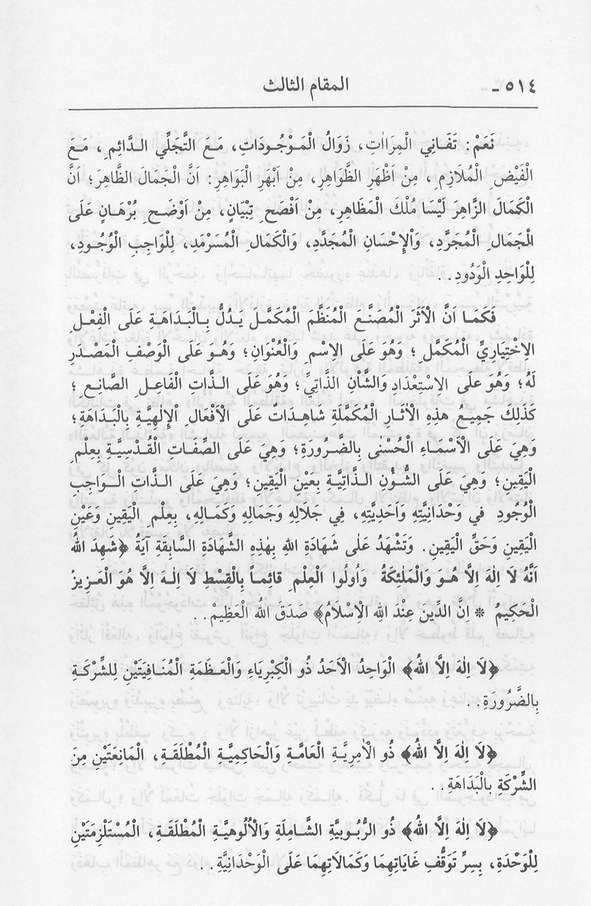 ٥١٤ ـ المقام الثالث
نَعَمْ: تَفَانِي الْمِرَاٰتِ، زَوَالُ الْمَوْجُودَاتِ، مَعَ التَّجَلِّي الدَّائِمِ، مَعَ
الْفَيْضِ الْمُلَازِمِ، مِنْ اَظْهَرِ الظَّوَاهِرِ، مِنْ اَبْهَرِ الْبَوَاهِرِ: اَنَّ الْجَمَالَ الظَّاهِرَ؛ اَنَّ
الْكَمَالَ الزَّاهِرَ لَيْسَا مُلْكَ الْمَظَاهِرِ، مِنْ اَفْصَحِ تِبْيَانٍ، مِنْ اَوْضَحِ بُرْهَانٍ عَلَى
الْجَمَالِ الْمُجَرَّدِ، وَالْاِحْسَانِ الْمُجَدَّدِ، وَالْكَمَالِ الْمُسَرْمَدِ، لِلْوَاجِبِ الْوُجُودِ،
لِلْوَاحِدِ الْوَدُودِ..
فَكَمَا اَنَّ الْاَثَرَ الْمُصَنَّعَ الْمُنَظَّمَ الْمُكَمَّلَ يَدُلُّ بِالْبَدَاهَةِ عَلَى الْفِعْلِ
الْاِخْتِيَارِيِّ الْمُكَمَّلِ؛ وَهُوَ عَلَى الْاِسْمِ وَالْعُنْوَانِ؛ وَهُوَ عَلَى الْوَصْفِ الْمَصْدَرِ
لَهُ؛ وَهُوَ عَلَى الْاِسْتِعْدَادِ وَالشَّاْنِ الذَّاتِيِّ؛ وَهُوَ عَلَى الذَّاتِ الْفَاعِلِ الصَّانِعِ؛
كَذٰلِكَ جَمِيعُ هٰذِهِ الْاٰثَارِ الْمُكَمَّلَةِ شَاهِدَاتٌ عَلَى الْاَفْعَالِ الْاِلٰهِيَّةِ بِالْبَدَاهَةِ؛
وَهِيَ عَلَى الْاَسْمَاءِ الْحُسْنٰى بِالضَّرُورَةِ؛ وَهِيَ عَلَى الصِّفَاتِ الْقُدْسِيَّةِ بِعِلْمِ
الْيَقِينِ؛ وَهِيَ عَلَى الشُّؤُنِ الذَّاتِيَّةِ بِعَيْنِ الْيَقِينِ؛ وَهِيَ عَلَى الذَّاتِ الْوَاجِبِ
الْوُجُودِ فِي وَحْدَانِيَّتِهِ وَاَحَدِيَّتِهِ، فِي جَلَالِهِ وَجَمَالِهِ وَكَمَالِهِ، بِعِلْمِ الْيَقِينِ وَعَيْنِ
الْيَقِينِ وَحَقِّ الْيَقِينِ. وَتَشْهَدُ عَلٰى شَهَادَةِ اللهِ بِهٰذِهِ الشَّهَادَةِ السَّابِقَةِ اٰيَةُ ﴿شَهِدَ اللهُ
اَنَّهُ لَا اِلٰهَ اِلَّا هُوَ وَالْمَلٰئِكَةُ وَاُولُوا الْعِلْمِ قَائِمًا بِالْقِسْطِ لَا اِلٰهَ اِلَّا هُوَ الْعَزِيزُ
الْحَكِيمُ * اِنَّ الدِّينَ عِنْدَ اللهِ الْاِسْلَامُ﴾ صَدَقَ اللهُ الْعَظِيمُ..
﴿لَا اِلٰهَ اِلَّا اللهُ﴾ الْوَاحِدُ الْاَحَدُ ذُو الْكِبْرِيَاءِ وَالْعَظَمَةِ الْمُنَافِيَتَيْنِ لِلشِّرْكَةِ
بِالضَّرُورَةِ..
﴿لَا اِلٰهَ اِلَّا اللهُ﴾ ذُو الْاٰمِرِيَّةِ الْعَامَّةِ وَالْحَاكِمِيَّةِ الْمُطْلَقَةِ، الْمَانِعَتَيْنِ مِنَ
الشِّرْكَةِ بِالْبَدَاهَةِ..
﴿لَا اِلٰهَ اِلَّا اللهُ﴾ ذُو الرُّبُوبِيَّةِ الشَّامِلَةِ وَالْاُلُوهِيَّةِ الْمُطْلَقَةِ، الْمُسْتَلْزِمَتَيْنِ
لِلْوَحْدَةِ، بِسِرِّ تَوَقُّفِ غَايَاتِهِمَا وَكَمَالَاتِهِمَا عَلَى الْوَحْدَانِيَّةِ..